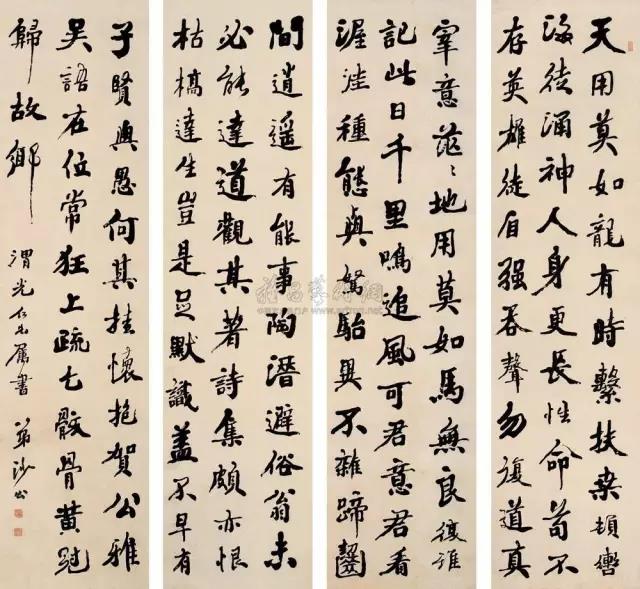 天用莫如龍有時繫扶桑頓轡
海徒涌神人身更長性命苟不
存英雄徒自强吞聲勿復道真
宰意茫〻地用莫如馬無良復誰
記此日千里鳴追風可君意君看
渥洼種態與駑駘異不雜蹄齧
間逍遙有能事陶潛避俗翁未
必能達道觀其著詩集頗亦恨
枯槁達生豈是足默識蓋不早有
子賢與愚何其挂懷抱賀公雅
吳語在位常狂上疏乞骸骨黃冠
歸故鄉 渭光仁兄屬書